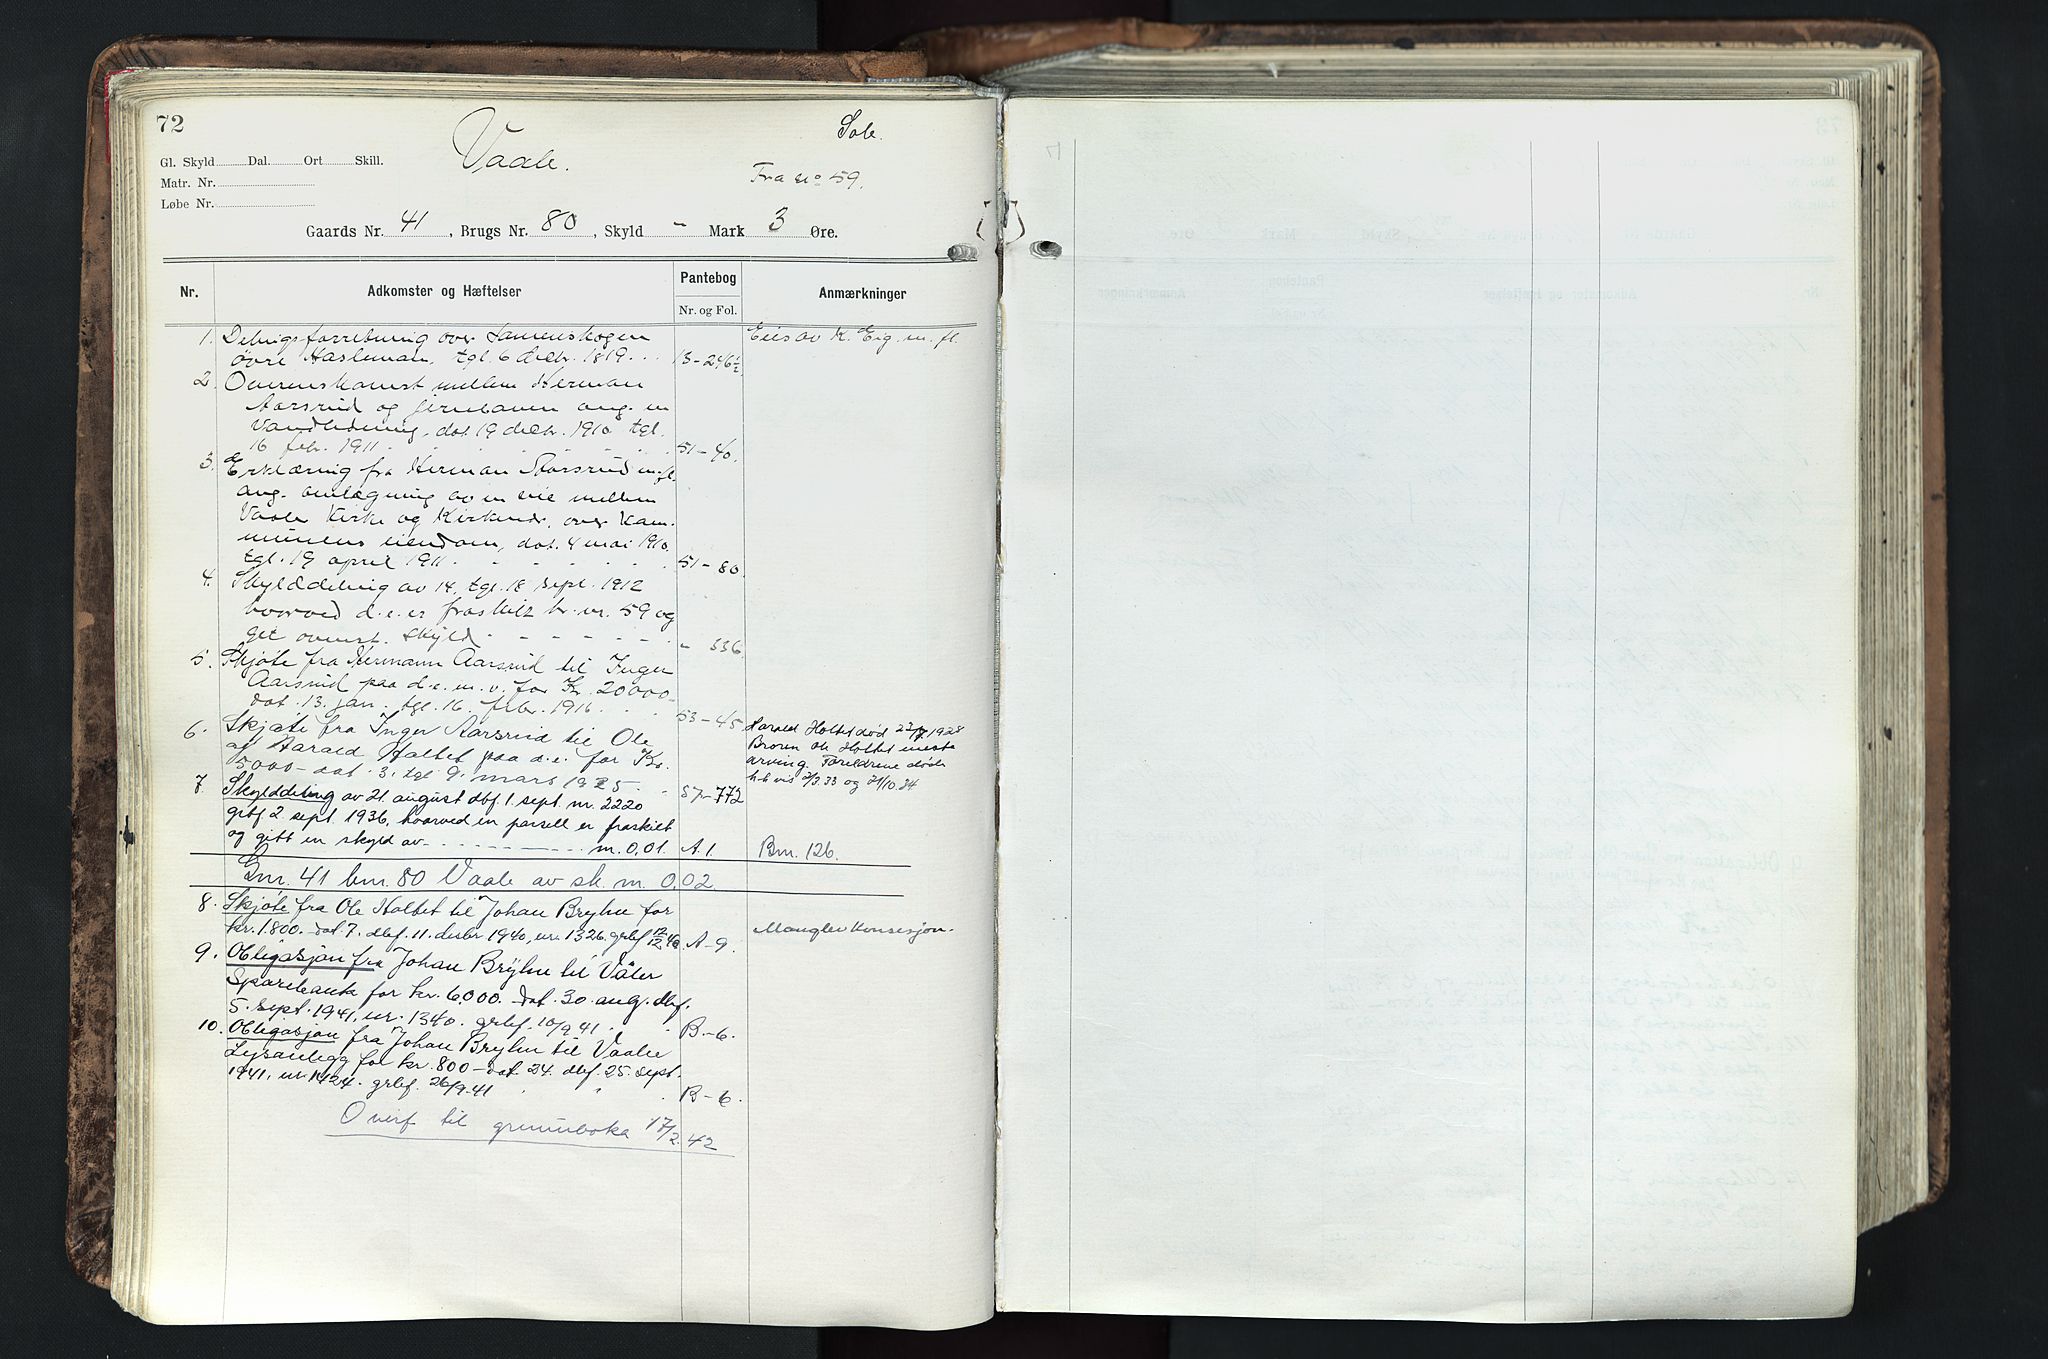 72
Vaale.
Sole.
Gl. Skyld Dal. Ort Skill.
Fra no 59.
Matr. Nr.
Løbe Nr.
Gaards Nr. 41, Brugs Nr. 80, Skyld - Mark 3 Øre.
Nr. Adkomster og Hæftelser Pantebog Anmærkninger
Nr. og Fol.
1. Delingsforretning over Sameskogen Eies av K. Eig. m. fl.
øvre Hasleman, tgl. 6 decbr. 1819. 13-246½
2. Overenskomst mellem Herman
Aarsrud og ang. en
Vandledning, dat. 19 decbr. 1910 tgl.
16 febr. 1911. 51-40.
3. Erklæring fra Herman Aarsrud m.fl.
ang. omlægning av en vei mellem
Vaaler Kirke og, over Kom-
munens eiendom, dat. 4 mai 1910.
tgl. 19 april 1911. 51-80.
4. Skylddeling av 14. tgl. 18 sept. 1912
hvorved d.e. er fraskilt br. nr. 59 og
git ovenst. skyld - - - - - - " 336.
5. Skjøte fra Hermann Aarsrud til Inger
Aarsrud paa d.e. m. v. for Kr. 20000-
dat. 13. jan. tgl. 16. febr. 1916. 53-45
6. Skjøte fra Inger Aarsrud til Ole
og Harald Holtet paa d.e. for Kr.
5000- dat. 3. tgl 9. mars 1925. 57-772
Harald Holtet død 1928
Broren Ole Holtet eneste
arving. Foreldrene døde
h.h.vis 2/3.33 og 21/10.34
7. Skylddeling av 21. august dbf. 1. sept. nr. 2220
grbf 2. sept. 1936, hvorved en parsell er fraskilt
og gitt en skyld av - - - - m. 0,01. A.1. Bnr. 126.
Gnr. 41 bnr. 80 Vaale av sk. m. 0,02.
8. Skjøte fra Ole Holtet til Johan Bryhn for
kr. 1.800.- dat 7. dbf. 11. desbr 1940, nr. 1326. grbf 12/12 40 A-9. Mangler konsesjon.
9. Obligasjon fra Johan Bryhn til Våler
Sparebank for kr. 6.000. dat. 30. aug. dbf.
5. sept. 1941, nr. 1340. grbf. 10/9 41. B.-6.
10. Obligasjon fra Johan Bryhn til Vaaler
Lysanlegg for kr. 800- dat. 24. dbf. 25. sept.
1941, nr. 1424. grbf. 26/9-41 B-6.
Overf til grunnboka 17/2. 42